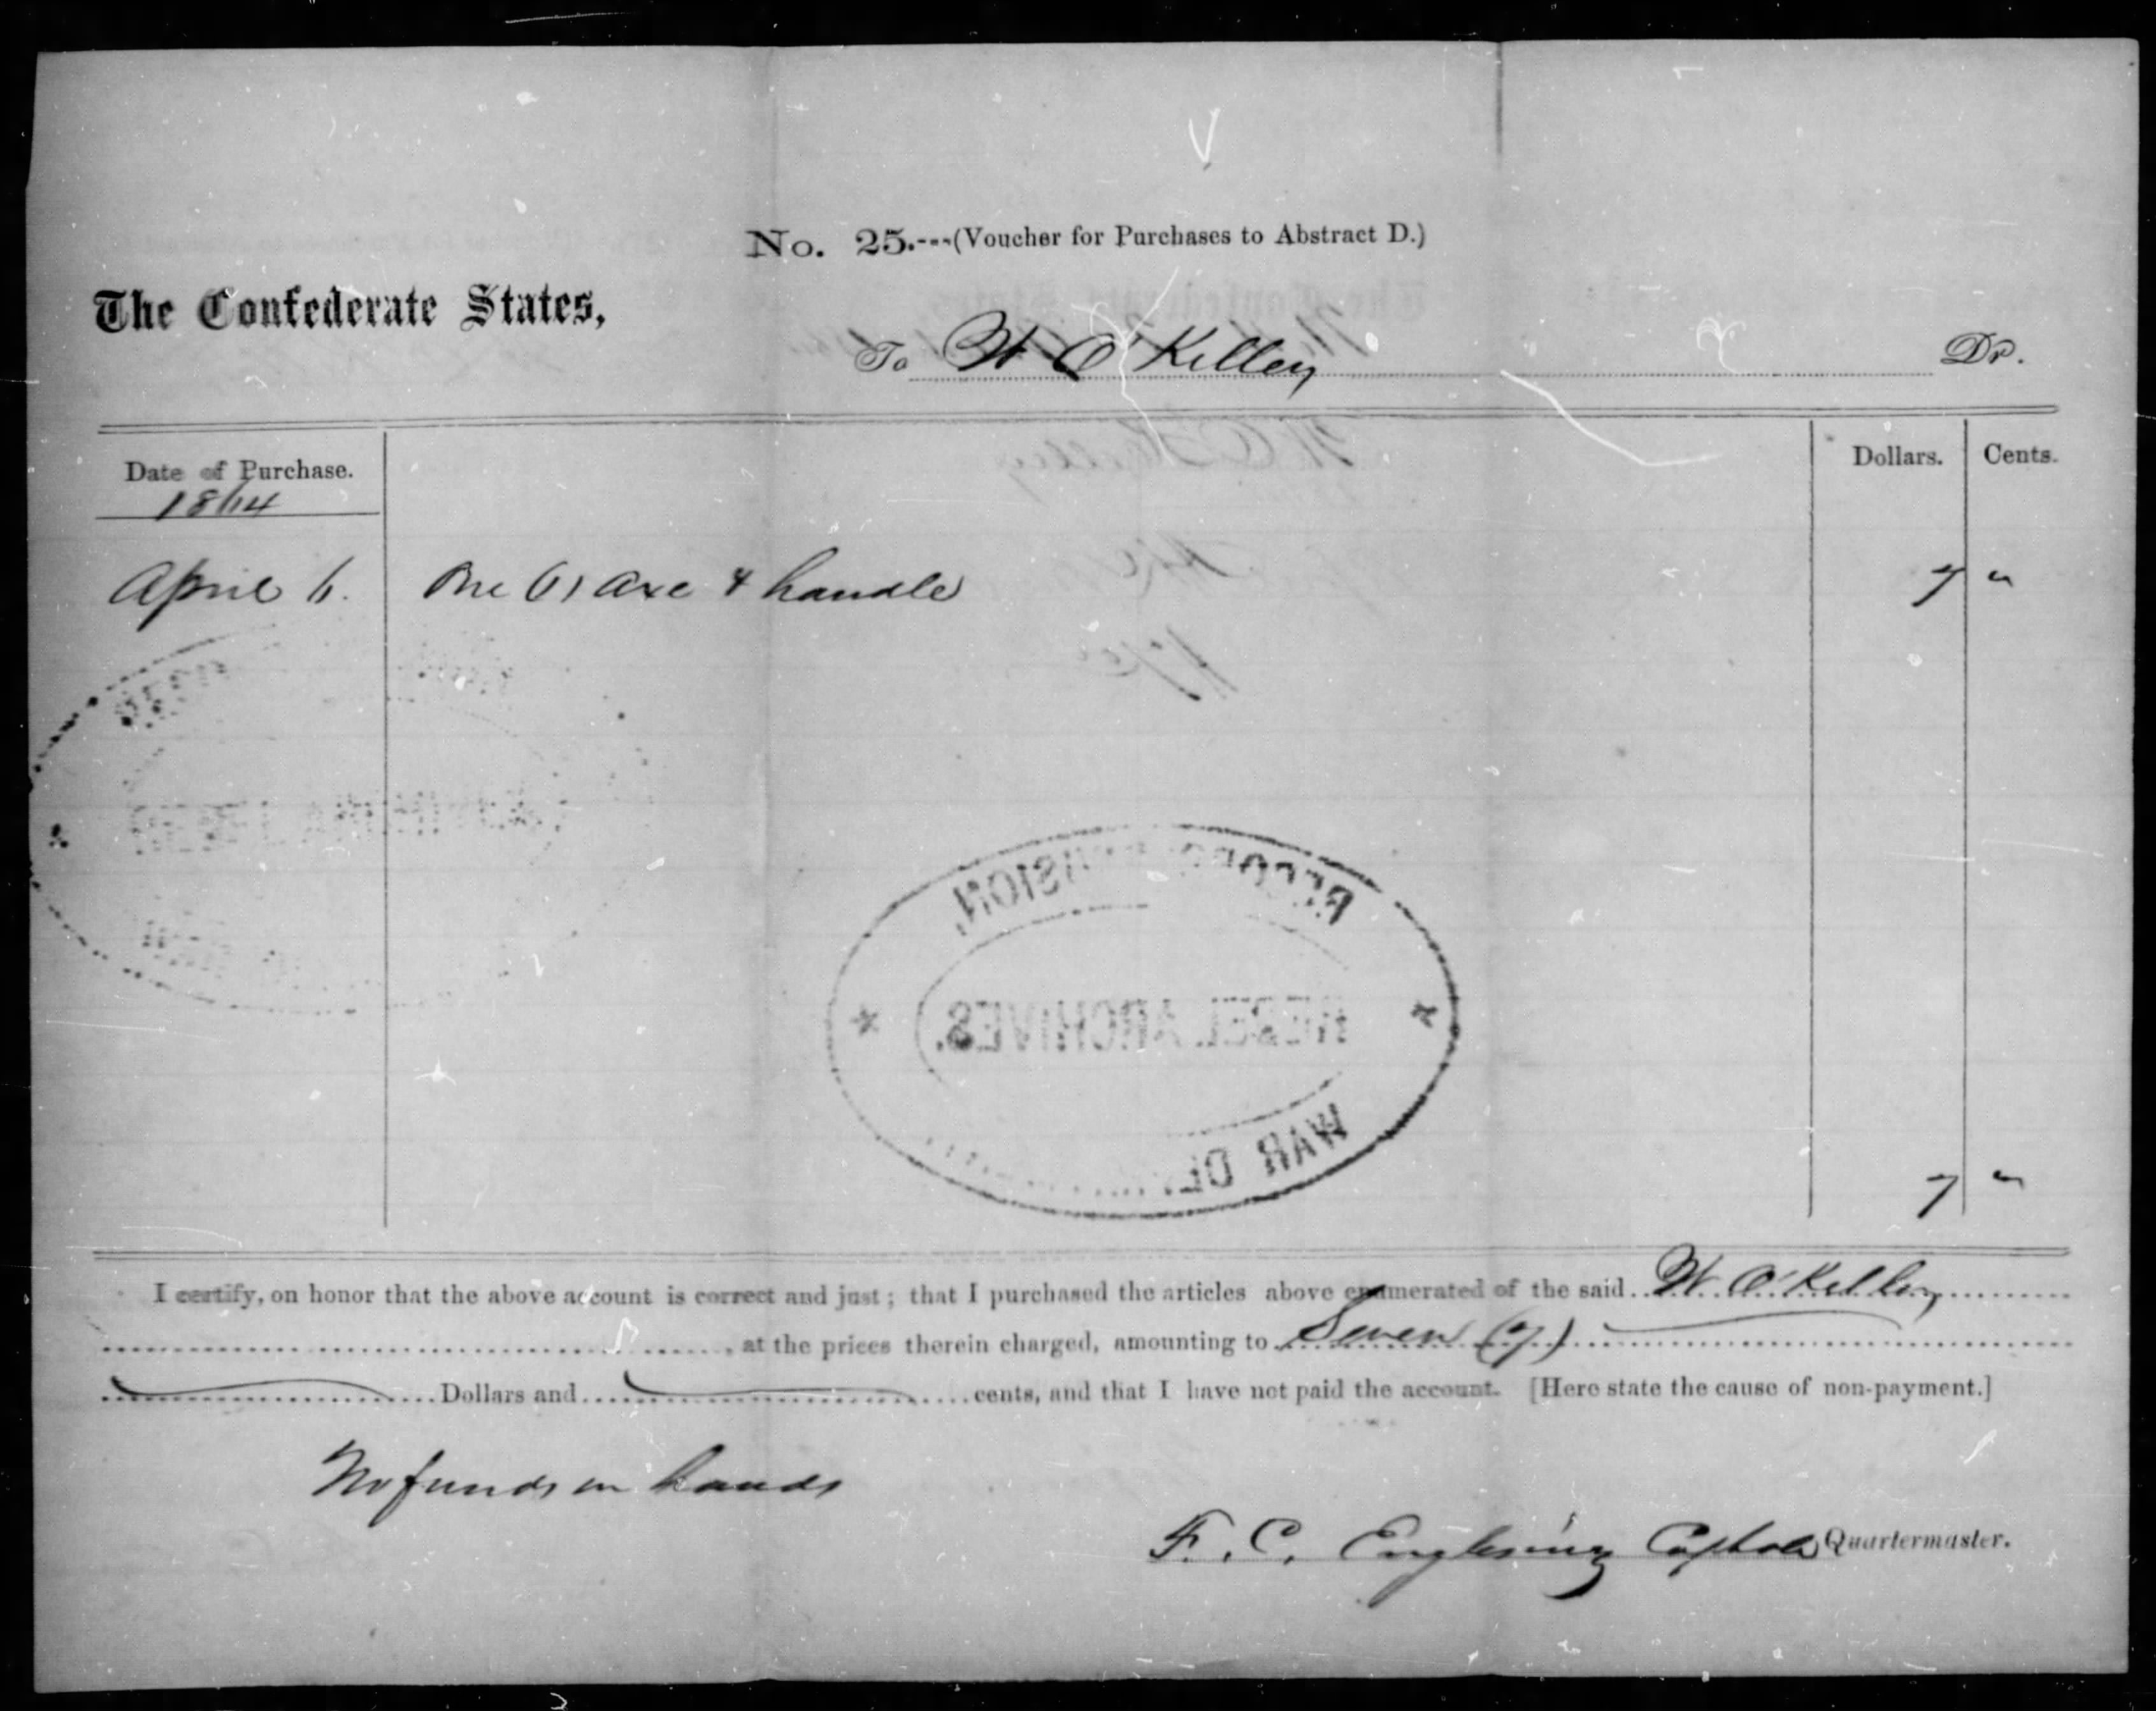 No. 25.---(Voucher for Purchases to Abstract D.)
The Confederate States,
To W O'Kelley Dr.
Date of Purchase. Dollars. Cents.
1864
April 6. One (1) axe & handle 7 "
RECORD DIVISION,
REBEL ARCHIVES.
WAR
7 "
I certify, on honor that the above account is correct and just; that I purchased the articles above enumerated of the said W. O'Kelley
at the prices therein charged, amounting to Seven (7)
Dollars and cents, and that I have not paid the account. [Here state the cause of non-payment.]
No funds on hands
F. C. Quartermaster.